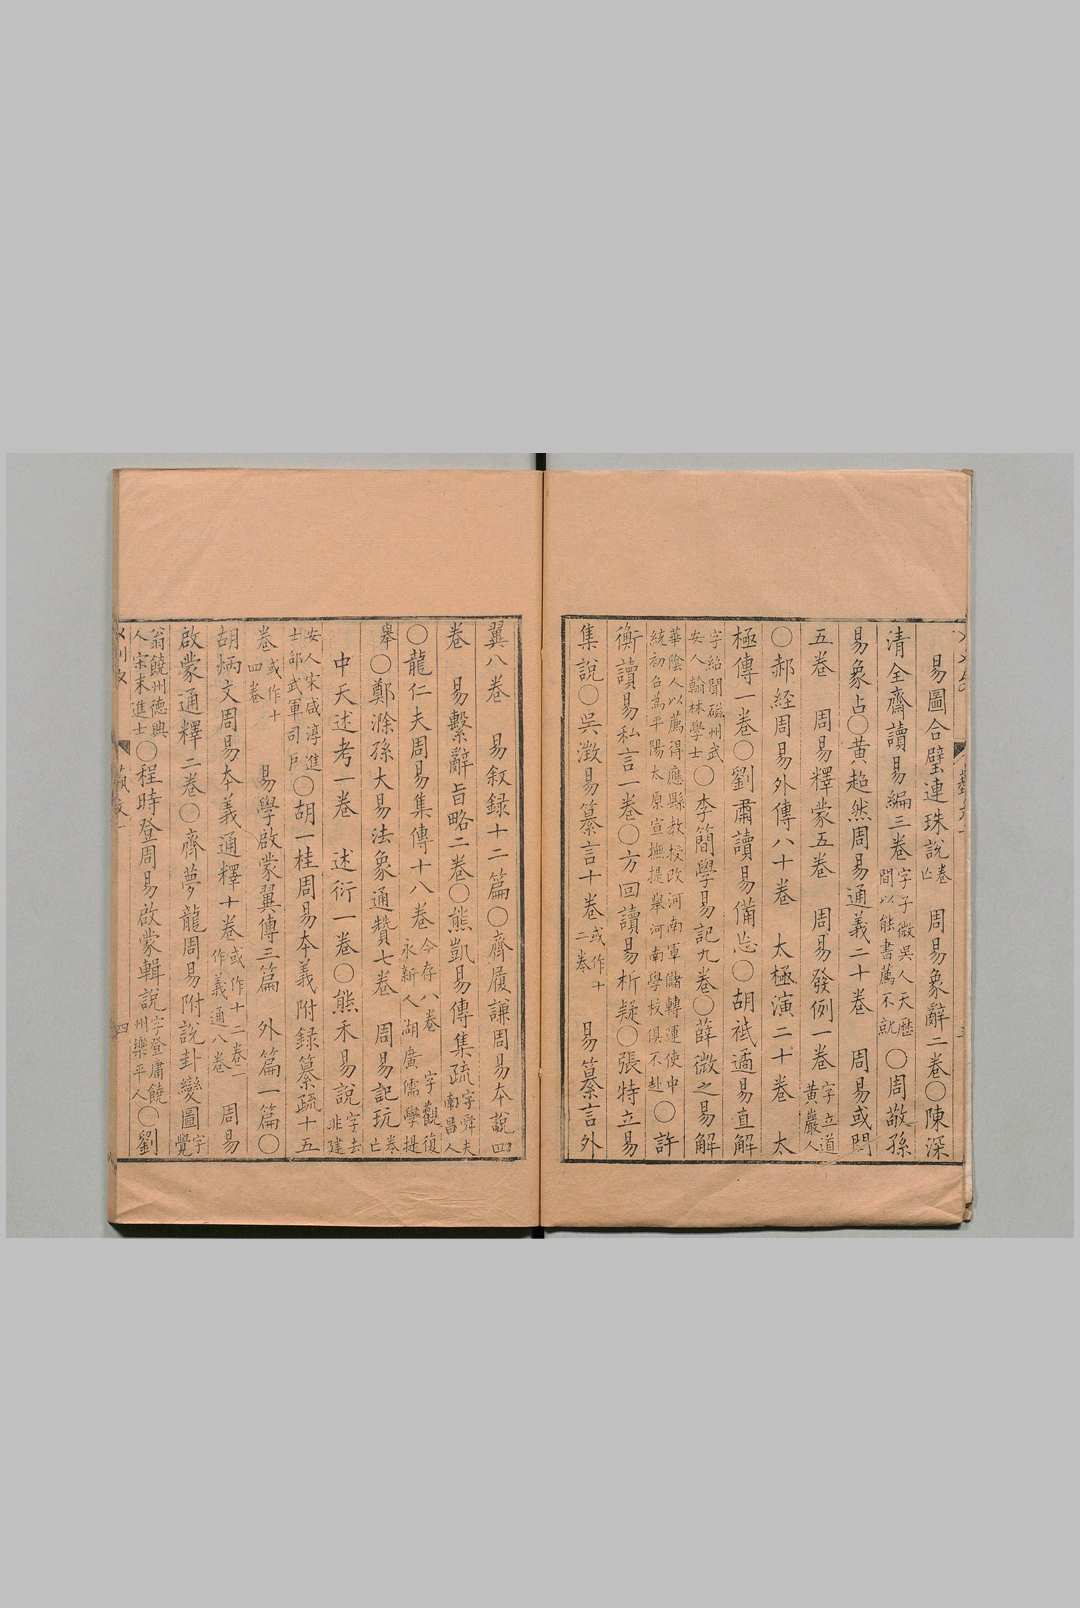 易圖合璧連珠說亡卷　周易象辭二卷○陳深
清全齋讀易編三卷字子微吳人天歷間以能書薦不就○周敬孫
易象占○黃超然周易通義二十卷　周易或問
五卷　周易釋蒙五卷　周易發例一卷字立道黃巖人
○郝經周易外傳八十卷　太極演二十卷　太
極傳一卷○劉肅讀易備忘○胡祗遹易直解
字紹聞磁州武安人翰林學士○李簡學易記九卷○薛微之易解
華陰人以薦得應縣教授改河南軍儲轉運使中統初名為平陽太原宣撫提舉河南學校俱不赴○許
衡讀易私言一卷○方回讀易析疑○張特立易
集說○吳澂易纂言十卷或作十二卷　易纂言外
翼八卷　易叙録十二篇○齊履謙周易本說四
卷　易繫辭旨略二卷○熊凱易傳集疏字舜夫南昌人
○龍仁夫周易集傳十八卷今存八卷　字觀復永新人湖廣儒學提
舉○鄭滁孫大易法象通贊七卷　周易記玩卷亡
中天述考一卷　述衍一卷○熊禾易說字去非建
安人宋咸淳進士邵武軍司戶○胡一桂周易本義附録纂疏十五
卷或作十四卷　易學啟蒙翼傳三篇　外篇一篇○
胡炳文周易本義通釋十卷或作十二卷二作義通八卷　周易
啟蒙通釋二卷○齊夢龍周易附說卦變圖字覺
翁饒州德興人宋末進士○程時登周易啟蒙輯說字登庸饒州樂平人○劉
四